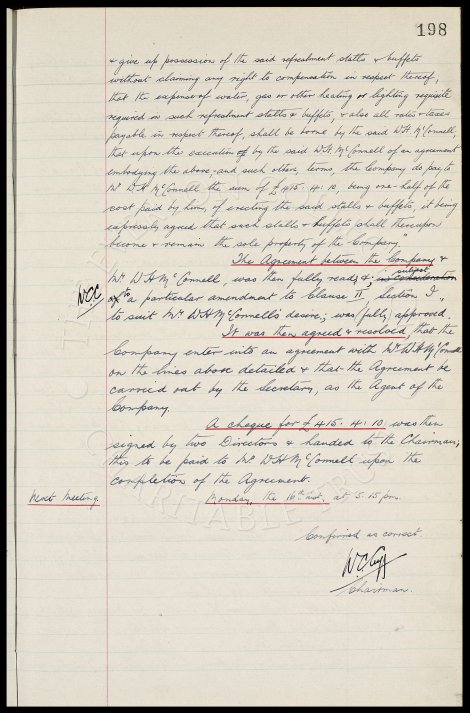 198
& give up possession of the said refreshment stalls & buffets
without claiming any right to compensation in respect thereof,
that the expense of water, gas or other heating or lighting requisite
required in such refreshment stalls & buffets, & also all rates & taxes
payable in respect thereof, shall be borne by the said W.H. McConnell,
that upon the execution of by the said W.H. McConnell of an agreement
embodying the above, and such other, terms, the Company do pay to
Mr W.H. McConnell the sum of £415. 4. 10, being one-half of the
cost paid by him, of erecting the said stalls & buffets, it being
expressly agreed that such stalls & buffets shall thereupon
become & remain the sole property of the Company.
The Agreement between the Company &
Mr. W H McConnell, was then fully read, &, in consideration subject
WCC of to a particular amendment to Clause II, Section I,
to suit Mr W H McConnell's desire; was fully approved.
It was then agreed & resolved, that the
Company enter into an agreement with Mr W H McConnell
on the lines above detailed & that the Agreement be
carried out by the Secretary, as the Agent of the
Company.
A cheque for £415. 4. 10. was then
signed by two Directors & handed to the Chairman;
this to be paid to Mr. W H McConnell upon the
completion of the Agreement.
Next Meeting. Monday, the 16th inst, at 5.15 pm.
Confirmed as correct.
W C Cuff
Chairman.
CHARITABLE TRUST